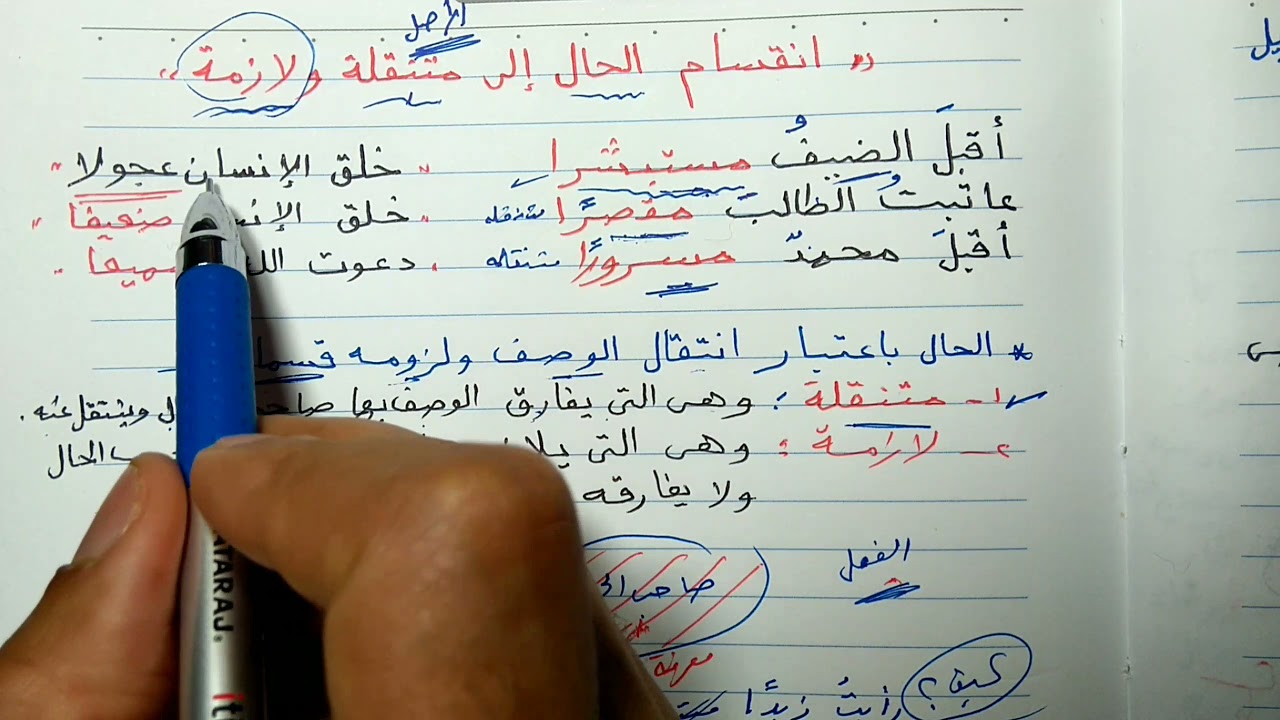 الأصل
" انقسام الحال إلى متنقلة ولازمة "
أقبلَ الضيفُ مستبشرا
عاتبتُ الطالبَ مقصرًا متنقله
أقبلَ محمدٌ مسرورًا متنقله
" خلق الإنسان عجولا "
" خلق الإنس ضعيفا "
دعوت الل سميعا
* الحال باعتبار انتقال الوصف ولزومه قسما
١- متنقلة : وهى التى يفارق الوصف بها صاح وينتقل عنه .
٢- لازمة : وهى التى يلا ب الحال
ولا يفارقه
الفعل
صاحب
معرفة
كيف ؟
زيدًا
ATARAJ.